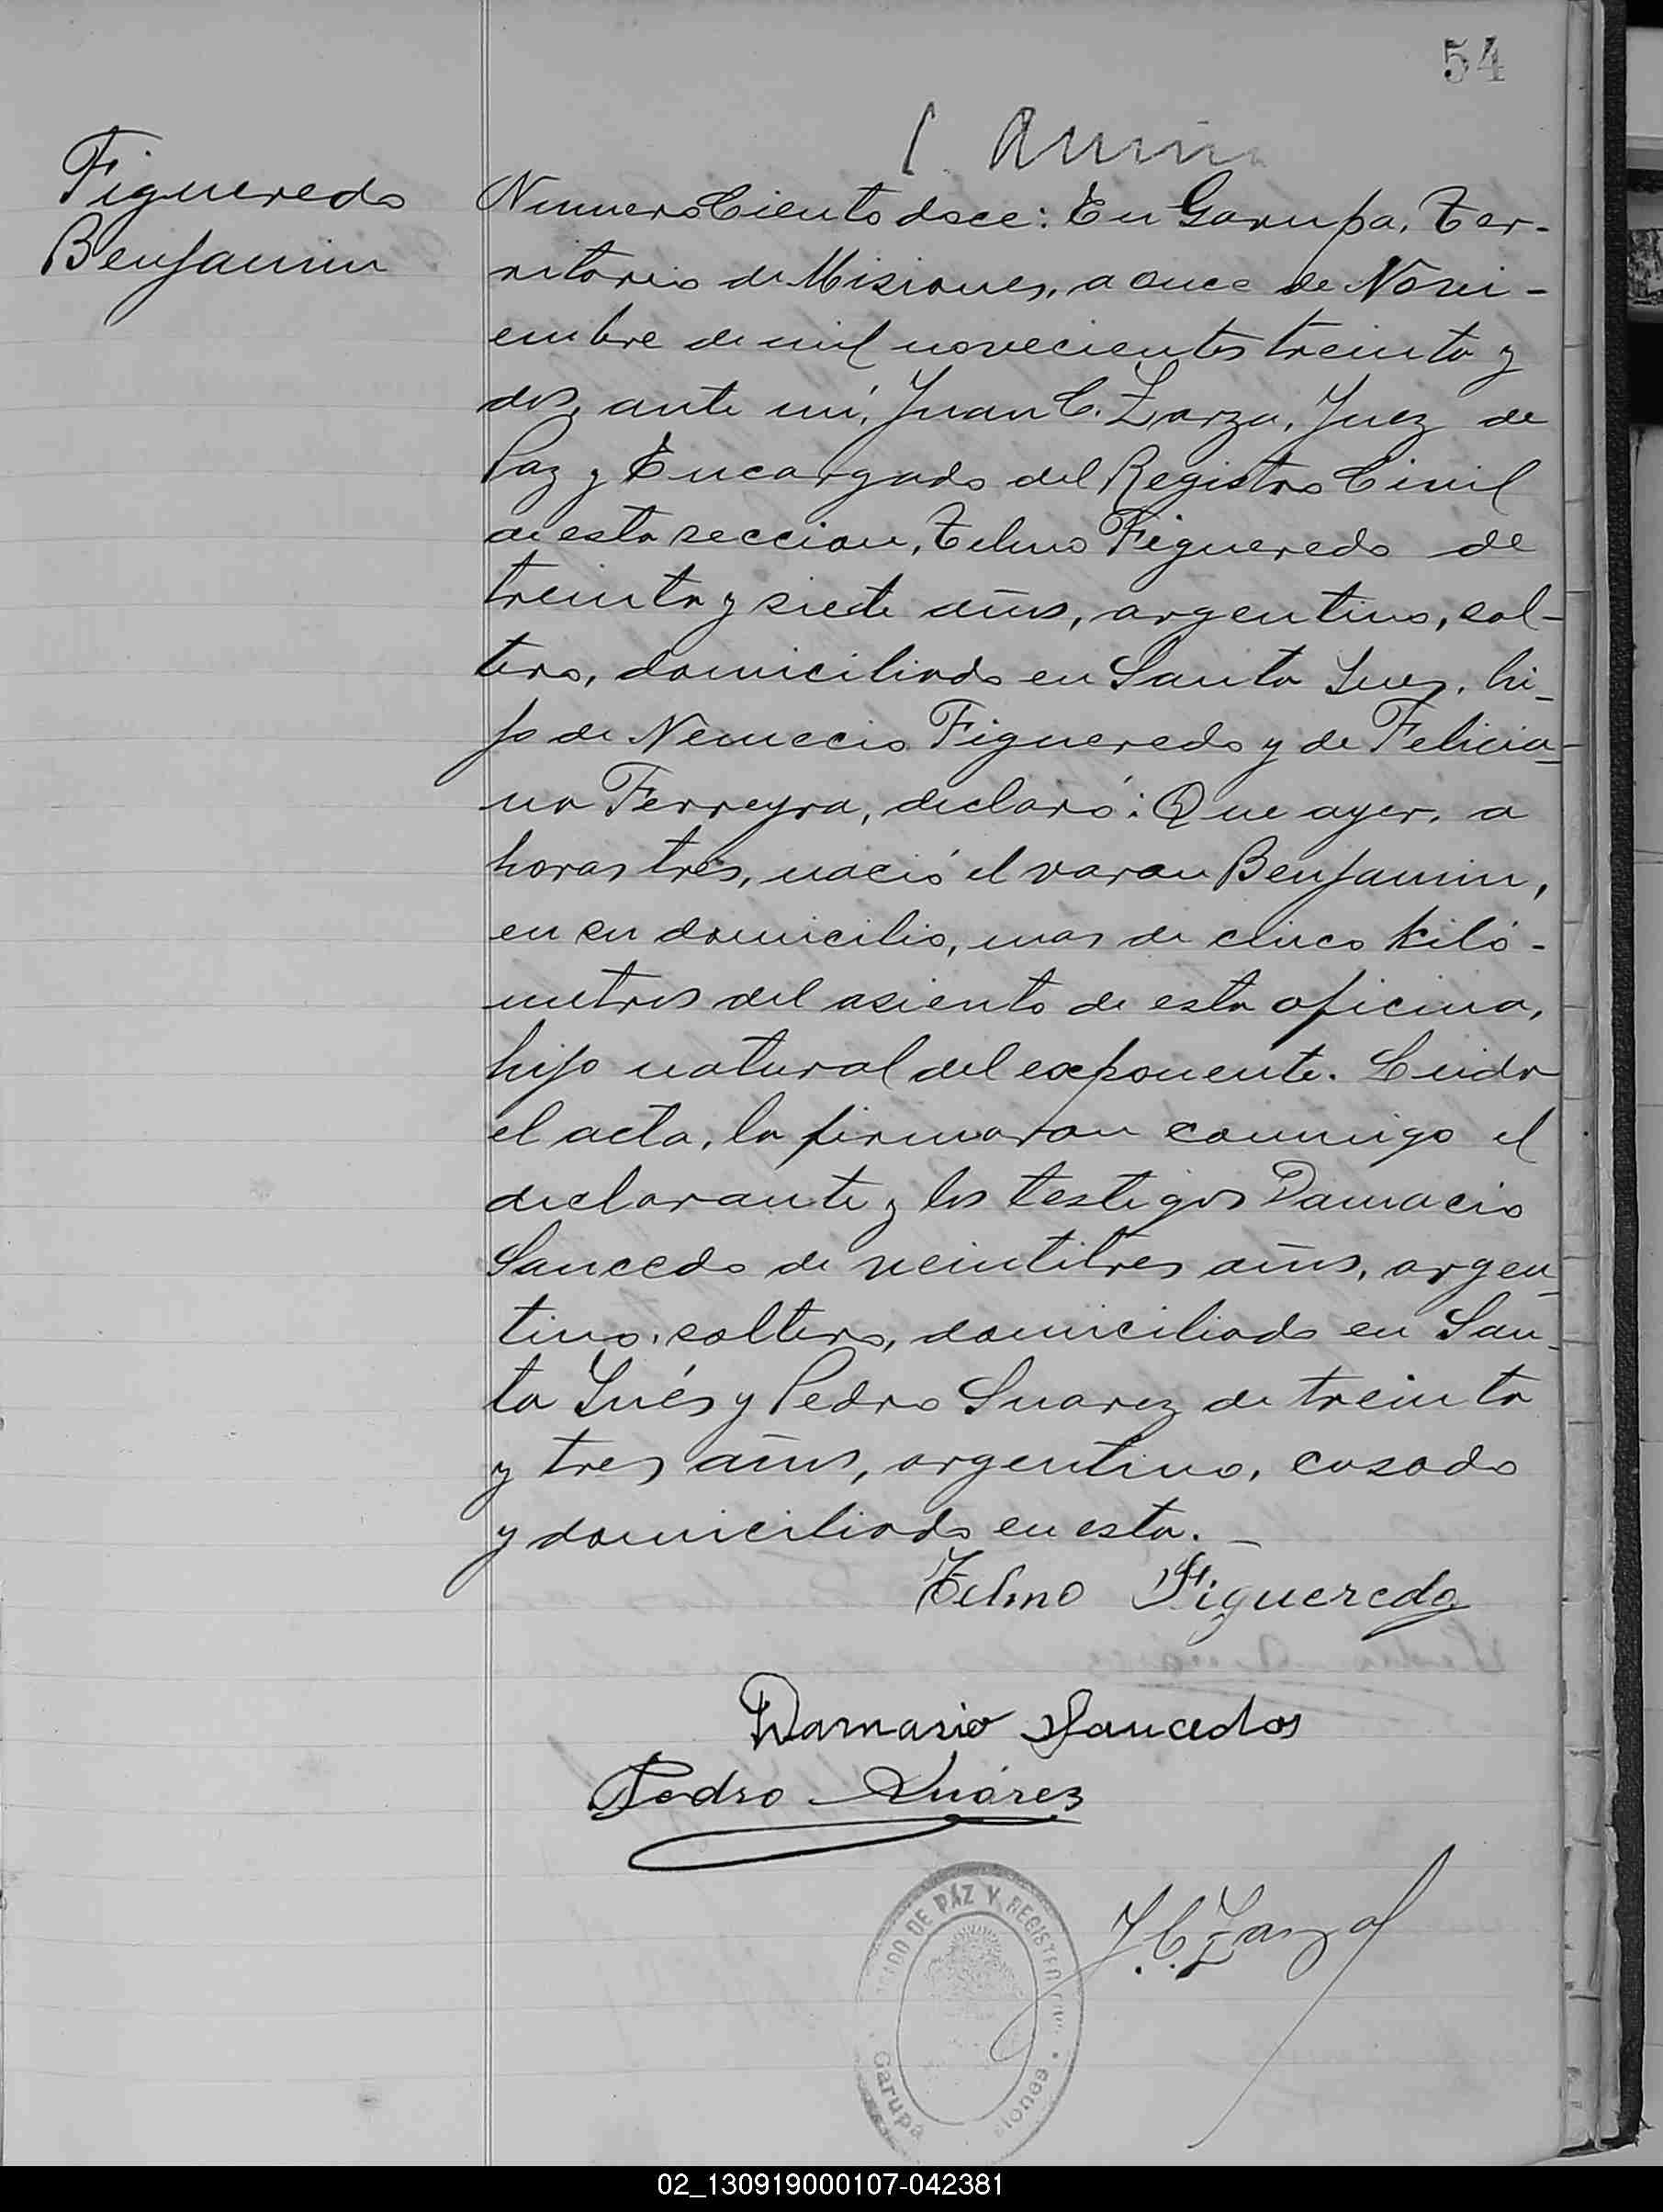 54
Figueredo
Benjamin
Numero Ciento doce: En Garupa, Ter-
ritorio de Misiones, a once de Novi-
embre de mil novecientos treinta y
dos, ante mí, Juan C. Zarza, Juez de
Paz y Encargado del Registro Civil
de esta seccion, Telmo Figueredo de
treinta y siete años, argentino, sol-
tero, domiciliado en Santa Ines, hi-
jo de Nemecio Figueredo y de Felicia-
na Ferreyra, declaró: Que ayer, a
horas tres, nació el varon Benjamin,
en su domicilio, mas de cinco kiló-
metros del asiento de esta oficina,
hijo natural del exponente. Leida
el acta, la firmaron conmigo el
declarante y los testigos Damacio
Saucedo de veintitres años, argen-
tino, soltero, domiciliado en San-
ta Inés y Pedro Suarez de treinta
y tres años, argentino, casado
y domiciliado en esta. —
Telmo Figueredo
Damasio Saucedos
Pedro Suárez
J. C. Zarza
DE PAZ Y REGISTRO
Garupá
02_130919000107-042381